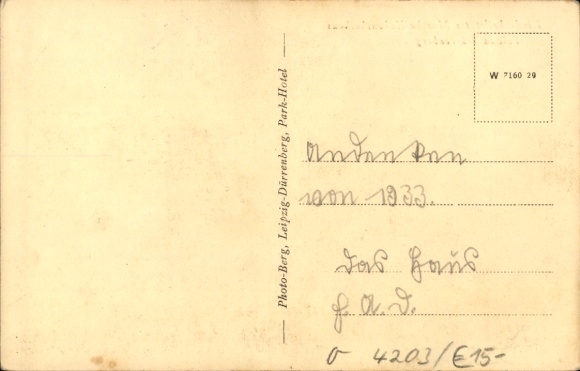 W 7160 29
Photo-Berg, Leipzig-Dürrenberg, Park-Hotel
Andenken
von 1933.
Das Haus
F. A. D.
4203/E15-